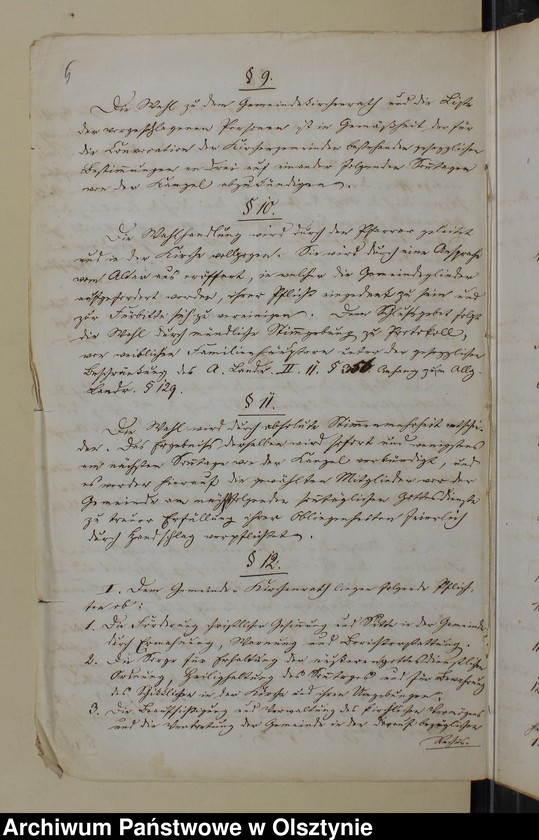 6
§ 9.
Die Wahl zu dem Gemeindekirchenrath und die Liste
der vorgeschlagenen Personen ist in Gemäßheit der für
die Convocation der Kirchengemeinden bestehenden gesetzlichen
Bestimmungen an drei auf einander folgenden Sonntagen
von der Kanzel abzukündigen.
§ 10.
Die Wahlhandlung wird durch den Pfarrer geleitet
und in der Kirche vollzogen. Sie wird durch eine Ansprache
vom Altar aus eröffnet, in welcher die Gemeindeglieder
aufgefordert werden, ihrer Pflicht eingedenk zu sein und
zur Fürbitte sich zu vereinigen. Dem Schlußgebet folgt
die Wahl durch mündliche Stimmgebung zu Protokoll,
von weiblichen Familienhäuptern unter der gesetzlichen
Beschränkung des A. Landr. II. 11. § Anhang zum Allg.
Landr. § 129.
§ 11.
Die Wahl wird durch absolute Stimmenmehrheit entschie-
den. Das Ergebniß derselben wird sofort und wenigstens
am nächsten Sonntage von der Kanzel verkündigt, und
es werden hierauf die gewählten Mitglieder vor der
Gemeinde am nächstfolgenden sonntäglichen Gottesdienste
zu treuer Erfüllung ihrer Obliegenheiten feierlich
durch Handschlag verpflichtet.
§ 12.
I. Dem Gemeinde-Kirchenrath liegen folgende Pflich-
ten ob:
1. Die Förderung christlicher Gesinnung und Sitte in der Gemeinde
durch Ermahnung, Warnung und Berichterstattung.
2. Die Sorge für Erhaltung der äußeren gottesdienstlichen
Ordnung, Heilighaltung des Sonntages und für Bewahrung
des Schicklichen in der Kirche und ihren Umgebungen.
3. Die Beaufsichtigung und Verwaltung des kirchlichen Vermögens
und die Vertretung der Gemeinde in der darauf bezüglichen
Archiwum Państwowe w Olsztynie